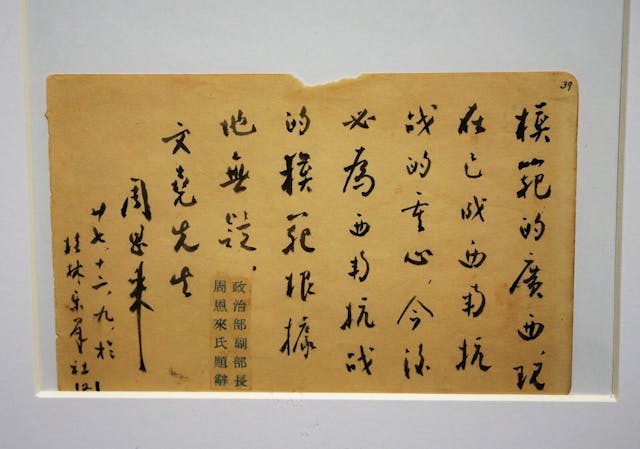 39
模範的廣西，现
在已成西南抗
战的重心，今後
必為西南抗战
的模範根據
地無疑。
文堯先生
周恩来
廿七、十二、九、於
桂林乐羣社
政治部副部長
周恩來氏題辭